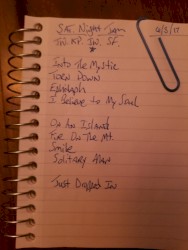 Sat. Night Jam
9/3/17
Into The Mystic
Torn Down
Epitaph
I Believe to My Soul
On An Island
Fire On The Mt.
Smile
Solitary Man
Just Dropped In